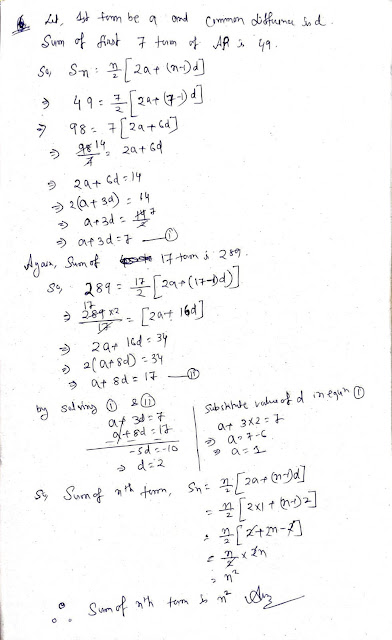 Let, 1st term be a and common difference is d.
Sum of first 7 term of AP is 49.
So, Sn = n/2 [2a + (n-1)d]
⇒ 49 = 7/2 [2a + (7-1)d]
⇒ 98 = 7[2a + 6d]
⇒ 98 14/7 = 2a + 6d
⇒ 2a + 6d = 14
⇒ 2(a + 3d) = 14
⇒ a + 3d = 14 7/2
⇒ a + 3d = 7 — (i)
Again, Sum of 17 term is 289.
So, 289 = 17/2 [2a + (17-1)d)]
⇒ 17 289 × 2/17 = [2a + 16d]
⇒ 2a + 16d = 34
⇒ 2(a + 8d) = 34
⇒ a + 8d = 17 — (ii)
by solving (i) & (ii)
a + 3d = 7
a + 8d = 17
-5d = -10
⇒ d = 2
Substitute value of d in equn (i)
a + 3×2 = 7
⇒ a = 7-6
⇒ a = 1
So, Sum of nth term, Sn = n/2 [2a + (n-1)d]
= n/2 [2×1 + (n-1)2]
= n/2 [2 + 2n - 2]
= n/2 × 2n
= n²
∴ Sum of nth term is n² Ans